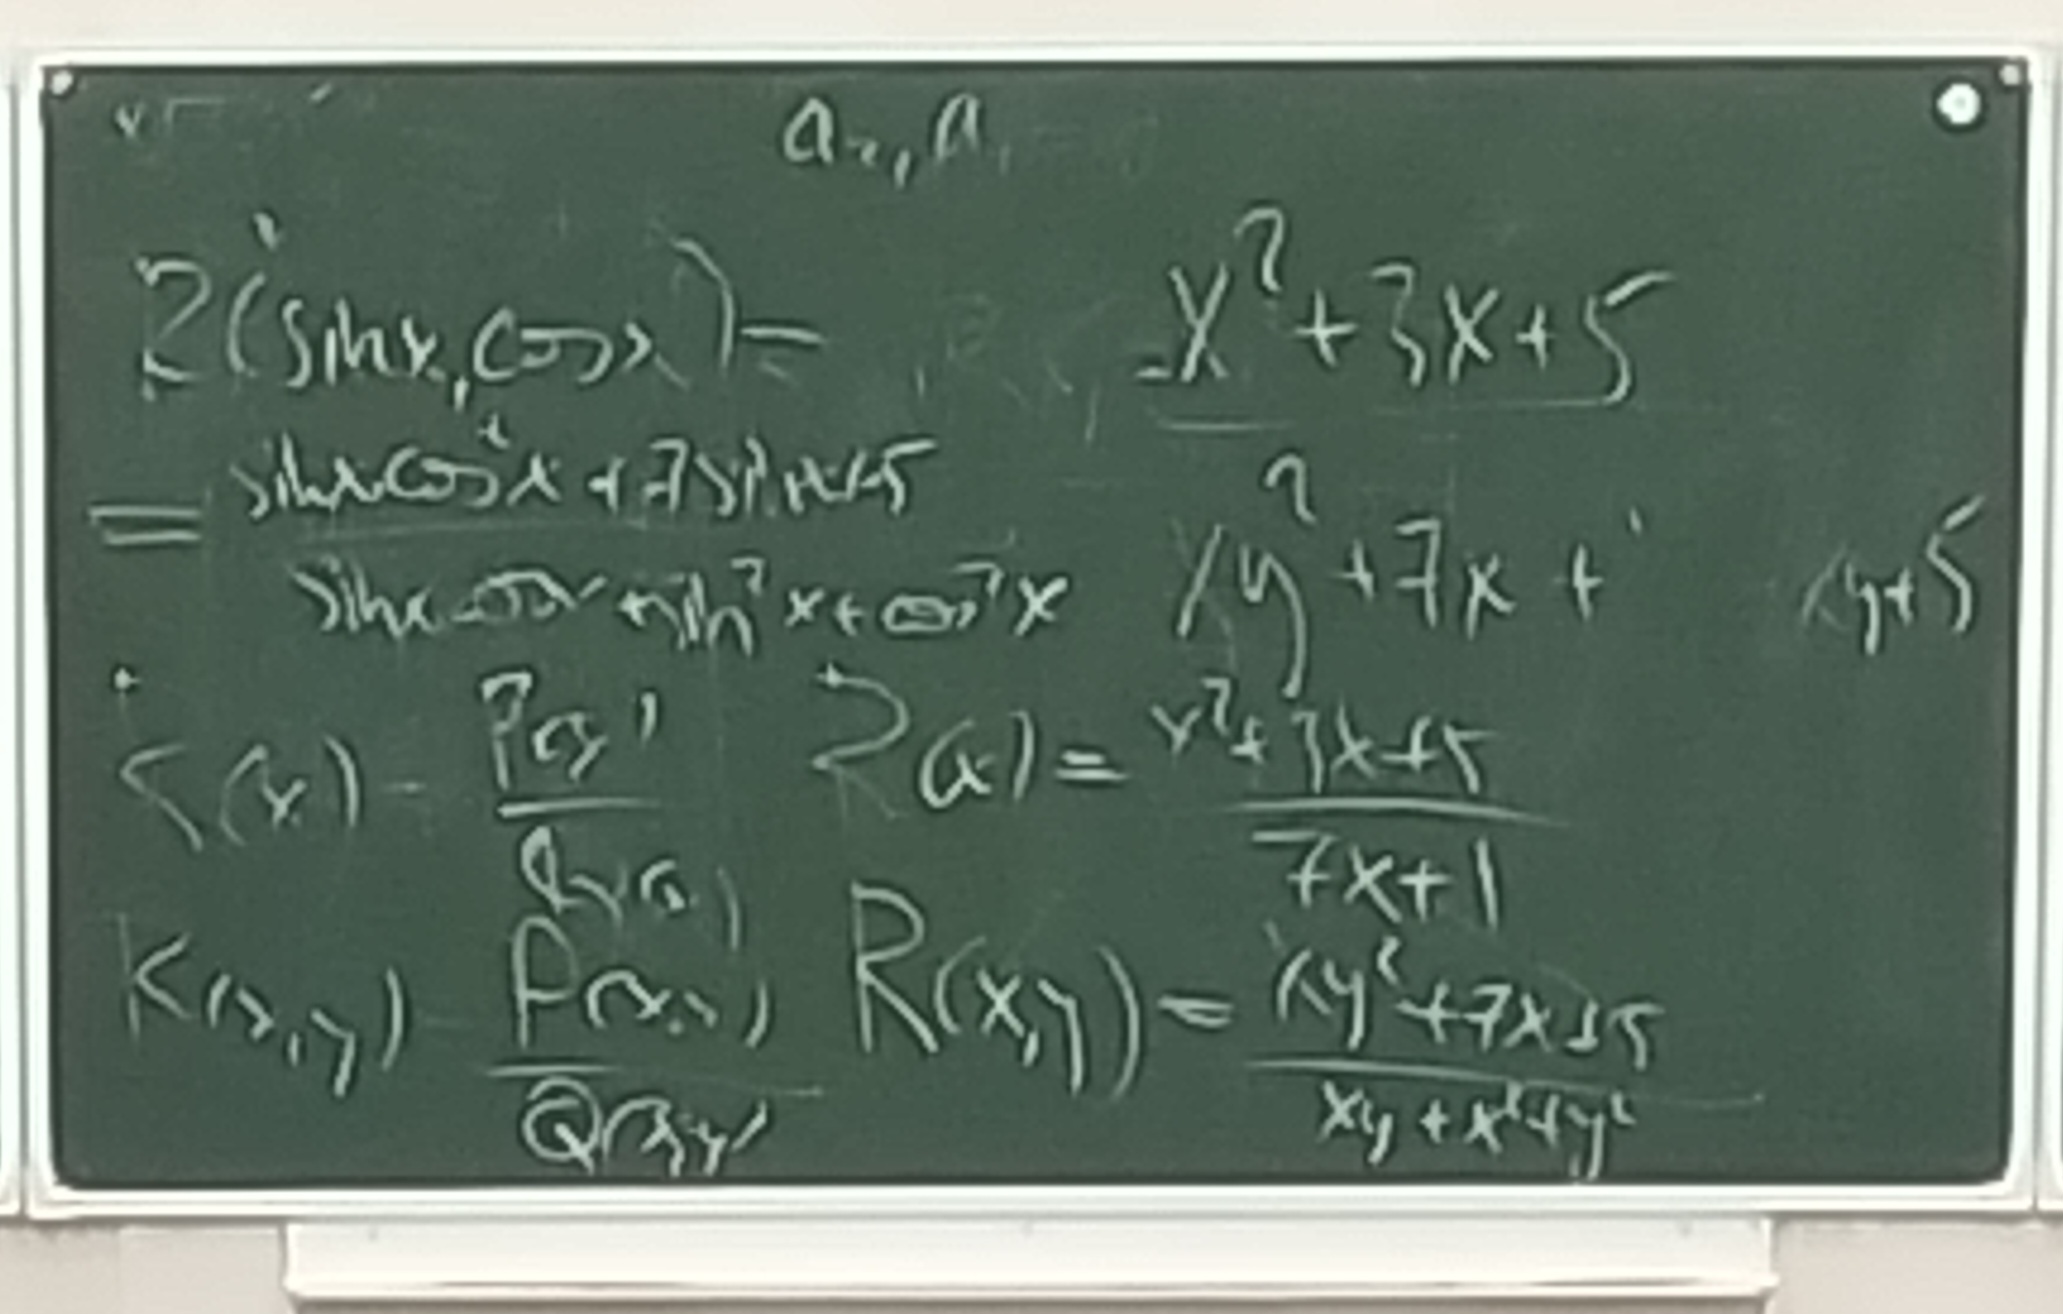 a₂, a
R(sinx, cosx) =
x² + 3x + 5
= (sinx cos²x + 7sinx + 5) / (sinx cosx + sin²x + cos²x)
xy² + 7x +
xy + 5
R(x) = P(x) / Q(x)
R(x) = (x² + 3x + 5) / (7x + 1)
R(x, y) = P(x, y) / Q(x, y)
R(x, y) = (xy² + 7x + 5) / (xy + x² + y²)